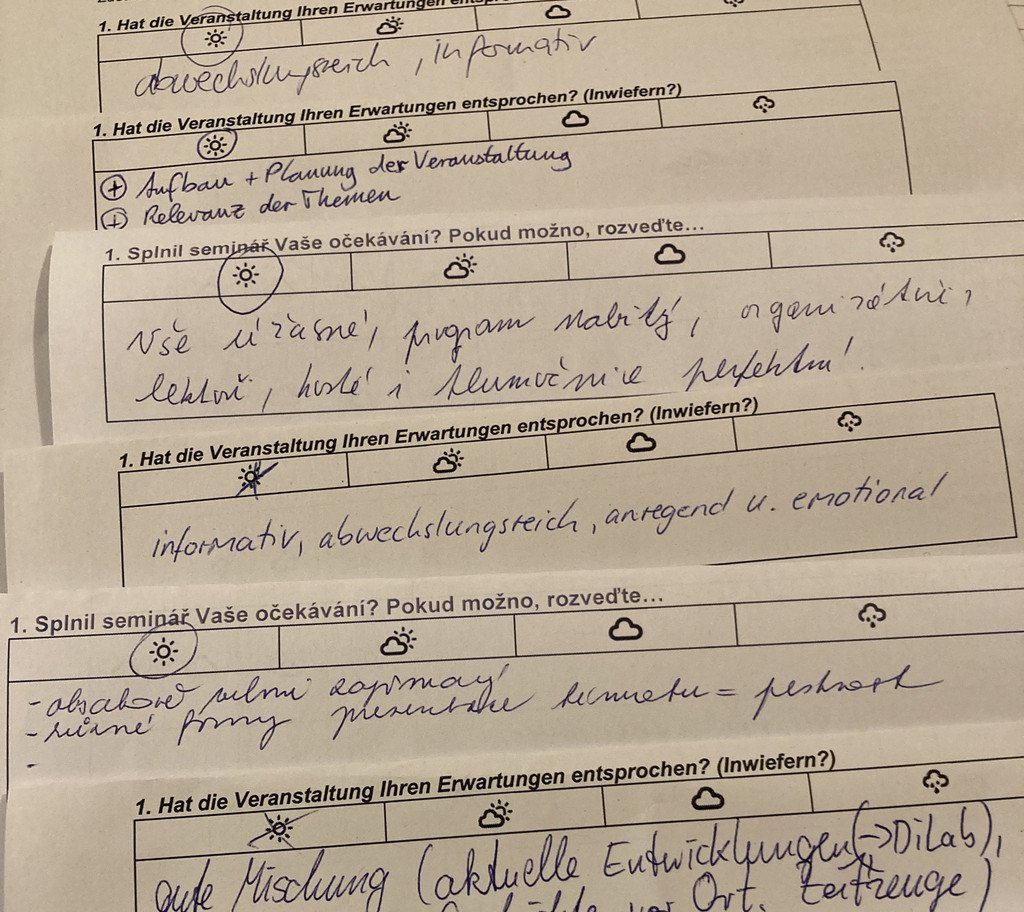 1. Hat die Veranstaltung Ihren Erwartungen
abwechslungsreich, informativ
1. Hat die Veranstaltung Ihren Erwartungen entsprochen? (Inwiefern?)
+ Aufbau + Planung der Veranstaltung
+ Relevanz der Themen
1. Splnil seminář Vaše očekávání? Pokud možno, rozveďte…
Vše úžasné, program nabitý, organizátoři,
lektoři, hosté i tlumočnice perfektní!
1. Hat die Veranstaltung Ihren Erwartungen entsprochen? (Inwiefern?)
informativ, abwechslungsreich, anregend u. emotional
1. Splnil seminář Vaše očekávání? Pokud možno, rozveďte…
- obsahově velmi zajímavý
- různé formy prezentace = pestrost
-
1. Hat die Veranstaltung Ihren Erwartungen entsprochen? (Inwiefern?)
gute Mischung (aktuelle Entwicklungen (->DiLab),
vor Ort, Zeitzeuge)